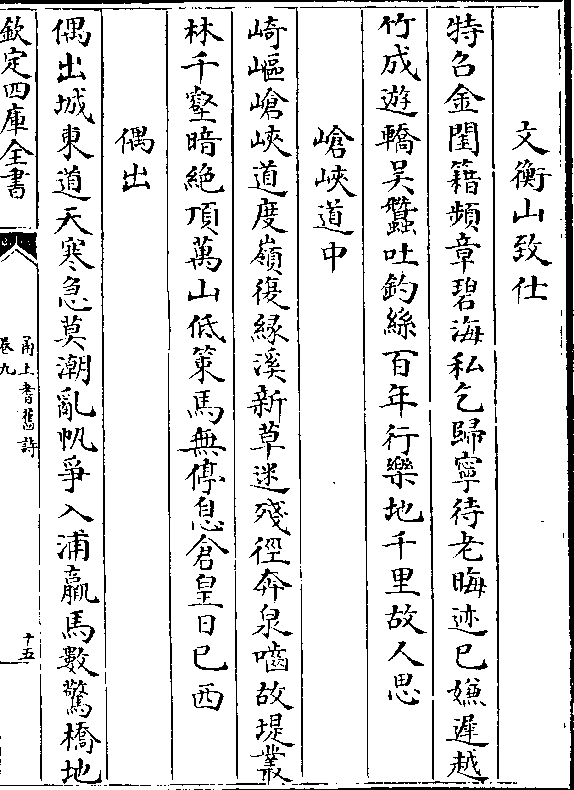 文衡山致仕
特召金閨籍頻章碧海私乞歸寧待老晦迹已嫌遲越
竹成遊轎吴蠶吐釣絲百年行樂地千里故人思
嵢峽道中
崎嶇嵢峽道度嶺復縁溪新草迷殘徑奔泉嚙故堤叢
林千壑暗絶頂萬山低策馬無停息倉皇日已西
偶出
偶出城東道天寒急莫潮亂帆爭入浦羸馬數驚橋地
欽定四庫全書
甬上耆舊詩
卷九
十五